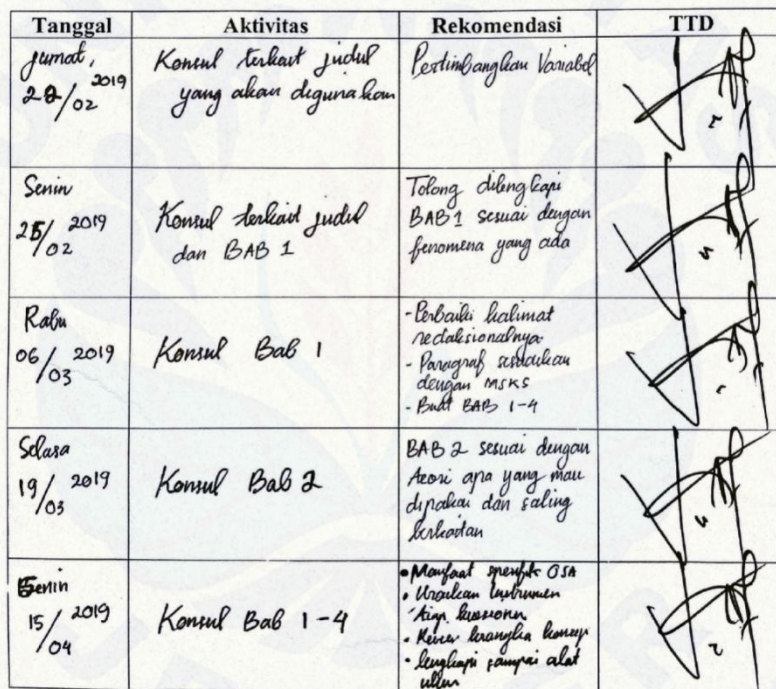 Tanggal Aktivitas Rekomendasi TTD
Jumat,
22/02 2019
Konsul terkait judul
yang akan digunakan
Pertimbangkan Variabel
Senin
25/02 2019
Konsul terkait judul
dan BAB 1
Tolong dilengkapi
BAB 1 sesuai dengan
fenomena yang ada
Rabu
06/03 2019
Konsul Bab 1
- Perbaiki kalimat
redaksionalnya
- Paragraf sesuaikan
dengan MSKS
- Buat BAB 1-4
Selasa
19/03 2019
Konsul Bab 2
BAB 2 sesuai dengan
teori apa yang mau
dipakai dan saling
berkaitan
Senin
15/04 2019
Konsul Bab 1-4
• Manfaat spesifik OSA
• Uraikan instrumen
tiap kuesioner
• Revisi kerangka konsep
• lengkapi sampai alat
ukur